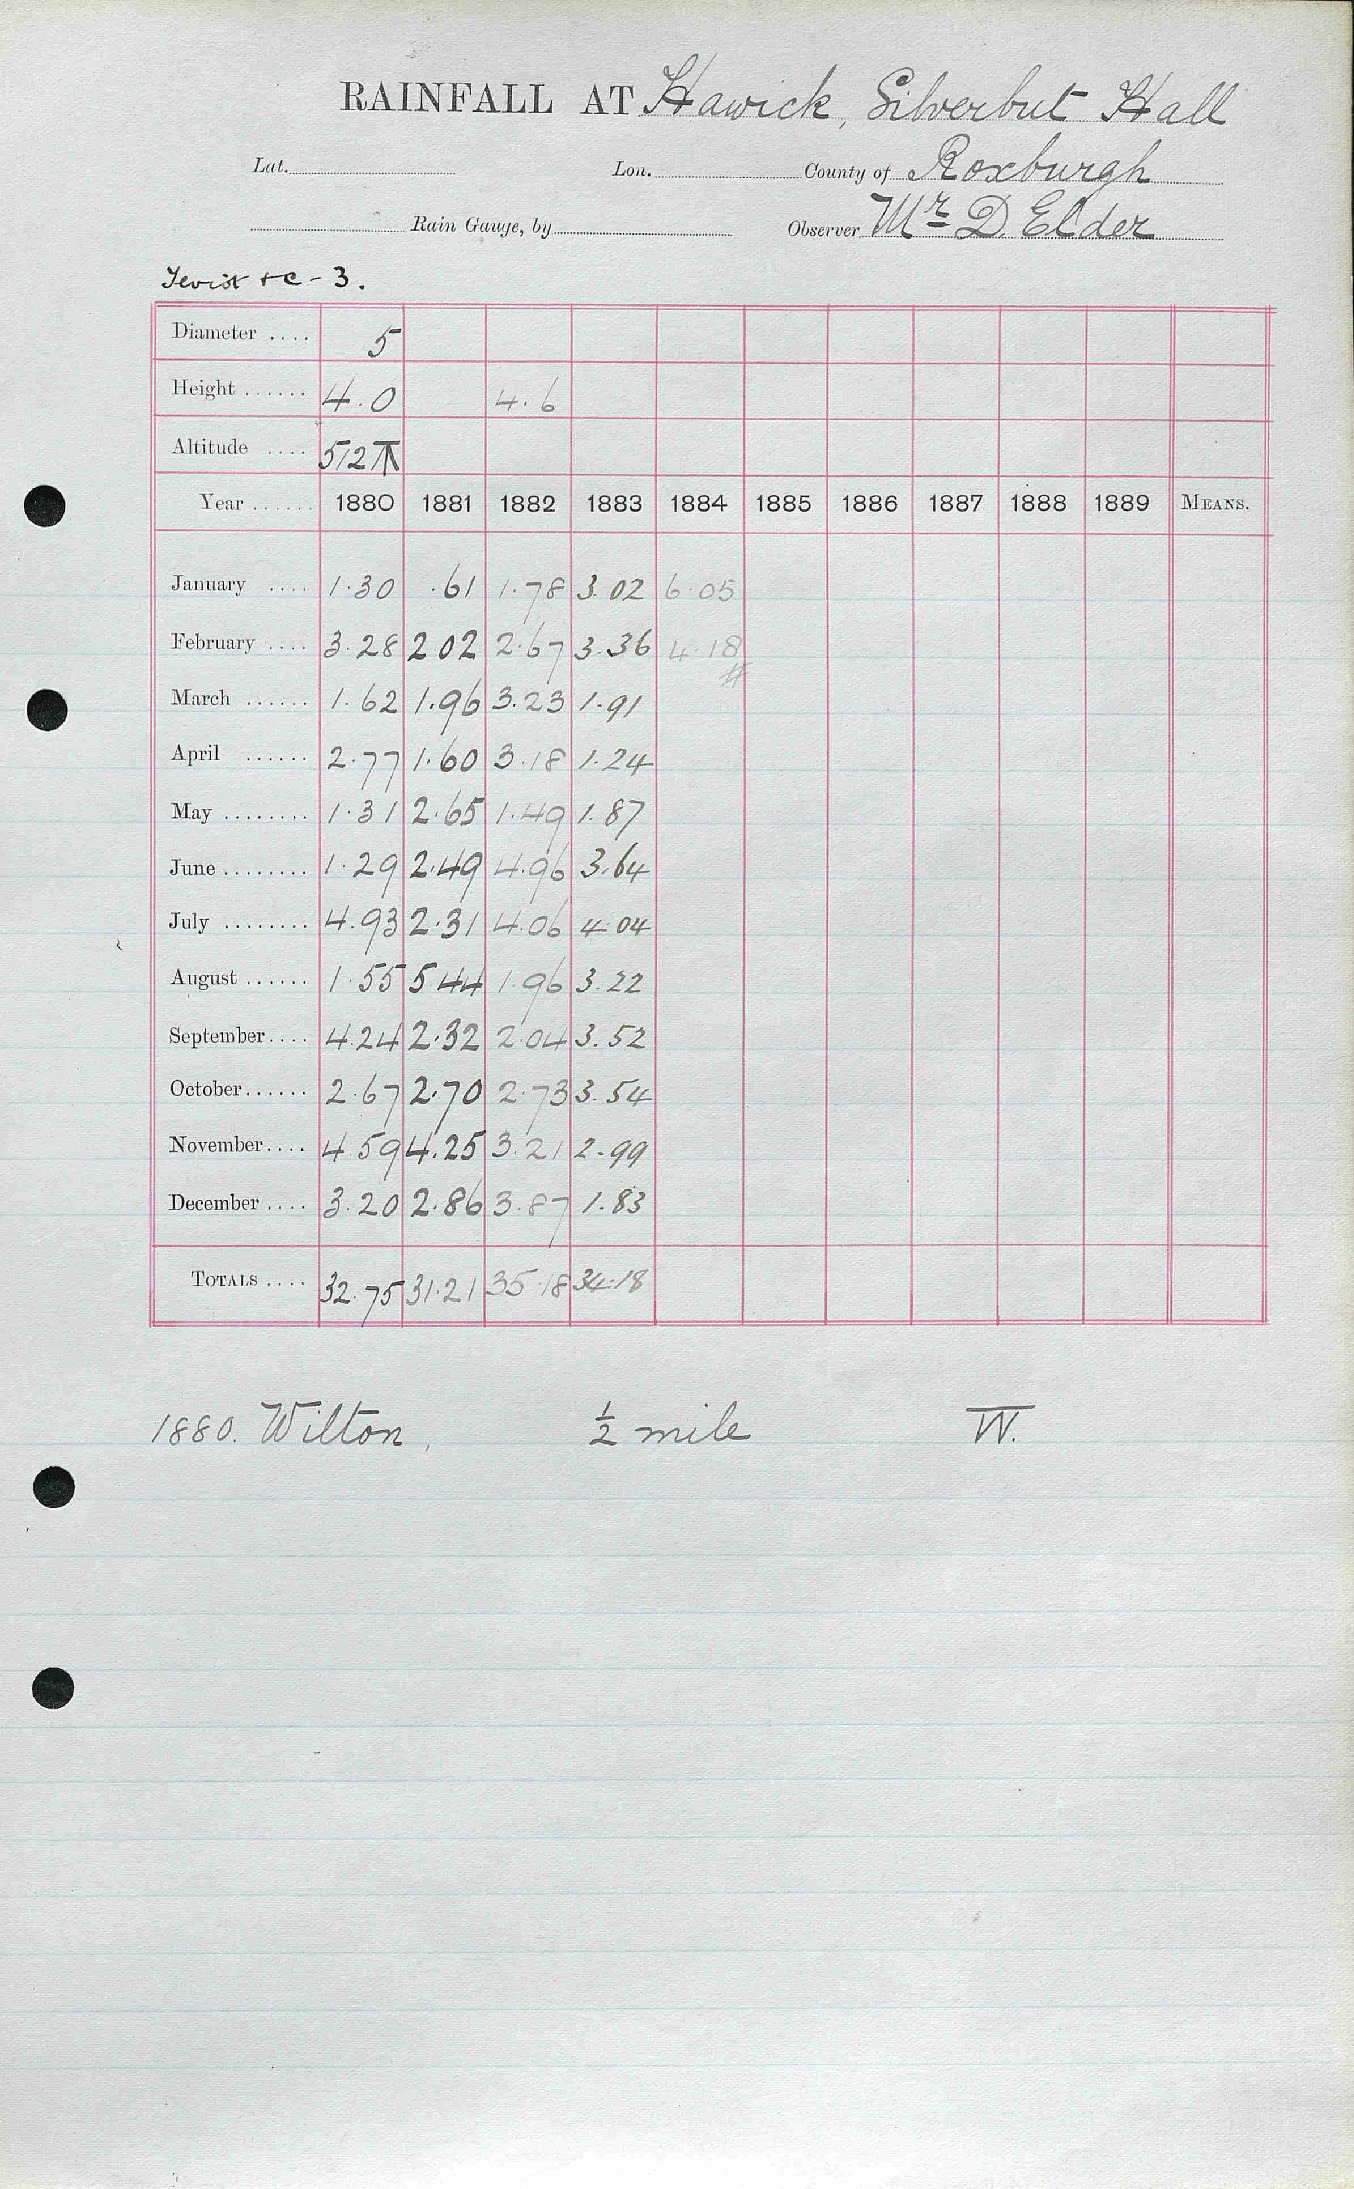 RAINFALL AT Hawick, Silverbut Hall
Lat. Lon. County of Roxburgh
Rain Gauge, by Observer Mr D. Elder
Teviot &c - 3.
Diameter .... 5
Height ...... 4.0 4.6
Altitude .... 512
Year ...... 1880 1881 1882 1883 1884 1885 1886 1887 1888 1889 MEANS.
January .... 1.30 .61 1.78 3.02 6.05
February .... 3.28 2 02 2.67 3.36 4.18
#
March ...... 1.62 1.96 3.23 1.91
April ...... 2.77 1.60 3.18 1.24
May ........ 1.31 2.65 1.49 1.87
June ........ 1.29 2.49 4.96 3.64
July ........ 4.93 2.31 4.06 4.04
August ...... 1.55 5 44 1.96 3.22
September .... 4.24 2.32 2.04 3.52
October ...... 2.67 2.70 2.73 3.54
November .... 4.59 4.25 3.21 2.99
December .... 3.20 2.86 3.87 1.83
TOTALS .... 32.75 31.21 35.18 34.18
1880. Wilton, ½ mile W.